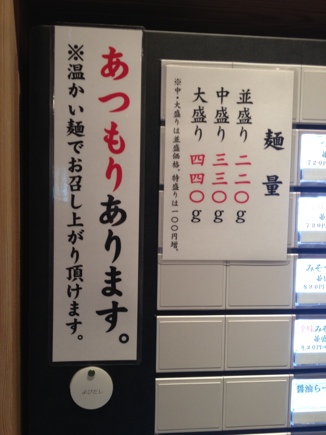 あつもりあります。
※温かい麺でお召し上がり頂けます。
麺量
並盛り 二二〇g
中盛り 三三〇g
大盛り 四四〇g
※中・大盛りは並盛価格。特盛りは一〇〇円増。
みそ
醤油らー